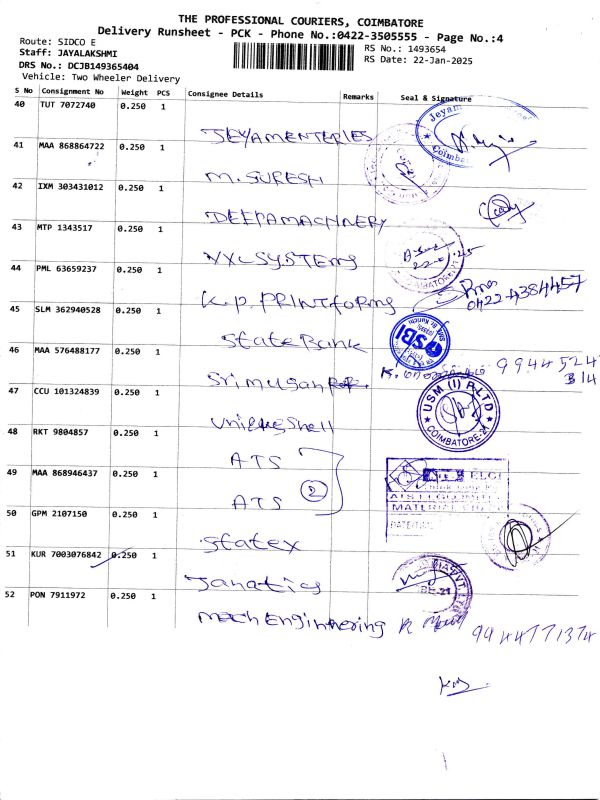 THE PROFESSIONAL COURIERS, COIMBATORE
Delivery Runsheet - PCK - Phone No.:0422-3505555 - Page No.:4
Route: SIDCO E
Staff: JAYALAKSHMI
DRS No.: DCJB149365404
Vehicle: Two Wheeler Delivery
RS No.: 1493654
RS Date: 22-Jan-2025
S No Consignment No Weight PCS Consignee Details Remarks Seal & Signature
40 TUT 7072740 0.250 1
JEYAMENTERIES
41 MAA 868864722 0.250 1
M. SURESH
42 IXM 303431012 0.250 1
DEEPAMACHNERY
43 MTP 1343517 0.250 1
VXL SYSTEMS
22-01-25
44 PML 63659237 0.250 1
K.P. PRINTforms
0422 4384457
45 SLM 362940528 0.250 1
State Bank
SBI
46 MAA 576488177 0.250 1
9944524
314
47 CCU 101324839 0.250 1
USM (I) P LTD
COIMBATORE-21
uniqueshell
48 RKT 9804857 0.250 1
ATS
49 MAA 868946437 0.250 1
ATS
2
ELGI
50 GPM 2107150 0.250 1
statex
51 KUR 7003076842 0.250 1
Janatics
52 PON 7911972 0.250 1
mech Enginnering